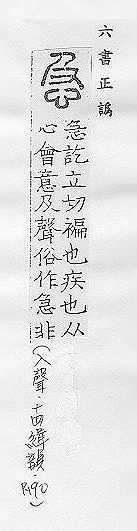 六書正譌
訖立切褊也疾也从
心會意及聲俗作急非(入聲·十四緝韻·P.190)